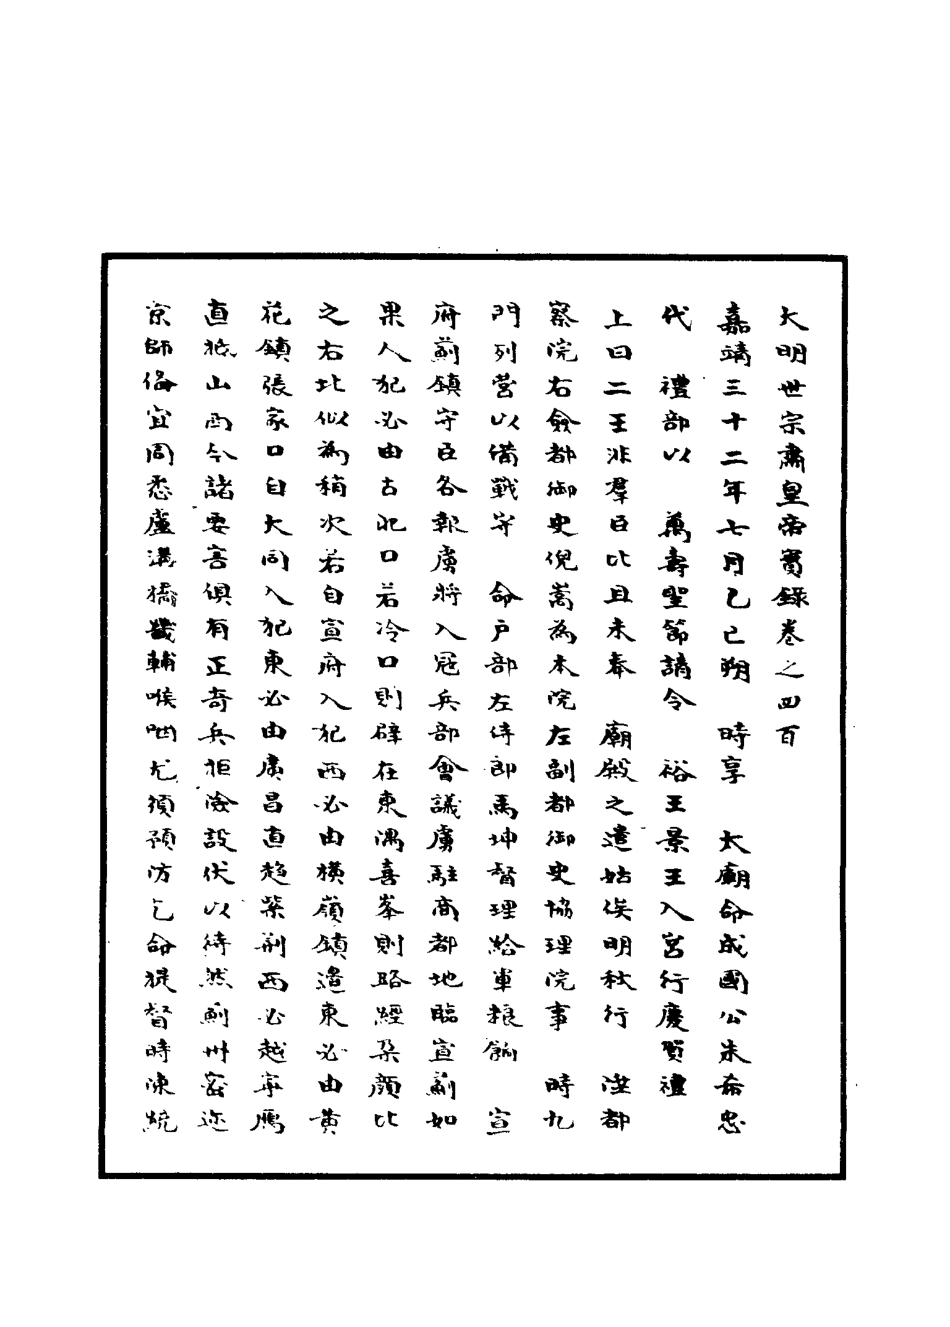 大明世宗肅皇帝實錄卷之四百
嘉靖三十二年七月己巳朔 時享 太廟命成國公朱希忠
代 禮部以 萬壽聖節請令 裕王景王入宮行慶賀禮
上曰二王非羣臣比且未奉 廟殿之遣姑俟明秋行 陞都
察院右僉都御史倪嵩為本院左副都御史協理院事 時九
門列營以備戰守 命户部左侍郎馬坤督理給軍粮餉 宣
府薊鎮守臣各報虜將入冦兵部會議虜駐商都地臨宣薊如
果入犯必由古北口若冷口則僻在東隅喜峯則路經朶顔比
之右北似為稍次若自宣府入犯西必由橫嶺鎮邊東必由黃
花鎮張家口自大同入犯東必由廣昌直趨紫荊西必越寧鴈
直抵山西今諸要害俱有正奇兵拒險設伏以待然薊州密迩
京師俻宜周悉盧溝橋畿輔喉咽尤須預防乞命提督時陳統